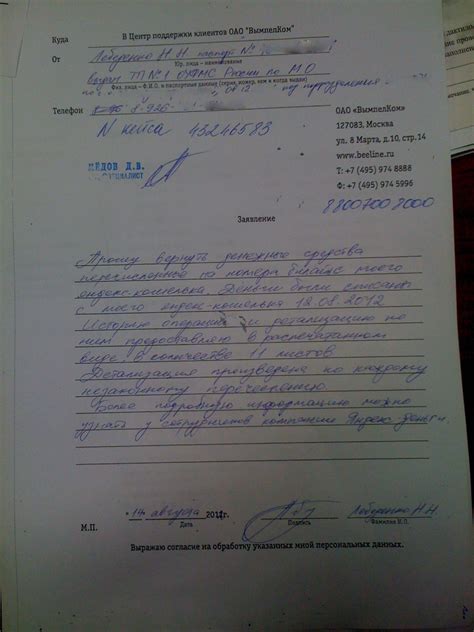 Куда В Центр поддержки клиентов ОАО "ВымпелКом"
От Лобуренко Н.Н. паспорт №
Юр. лица – наименование
выдан ТП №1 ОУФМС России по М.О
Физ. лица – Ф.И.О. и паспортные данные (серия, номер, кем и когда выдан)
08.12 код подразделения
Телефон 8-926
N кейса 43246583
ОАО «ВымпелКом»
127083, Москва
ул. 8 Марта, д.10, стр.14
www.beeline.ru
Т: +7 (495) 974 8888
Ф: +7 (495) 974 5996
ШЕДОВ Д.В.
СПЕЦИАЛИСТ
88007008000
Заявление
Прошу вернуть денежные средства
перечисленные на номера билайн с моего
яндекс-кошелька. Деньги были списаны
с моего яндекс-кошелька 12.08.2012
Историю операций и детализацию по
ним предоставляю в распечатанном
виде в количестве 11 листов.
Детализация произведена по каждому
незаконному перечислению.
Более подробную информацию можно
узнать у сотрудников компании Яндекс-деньги.
М.П. "14" августа 2012г. Лобуренко Н.Н.
Дата Подпись Фамилия И.О.
Выражаю согласие на обработку указанных мной персональных данных.